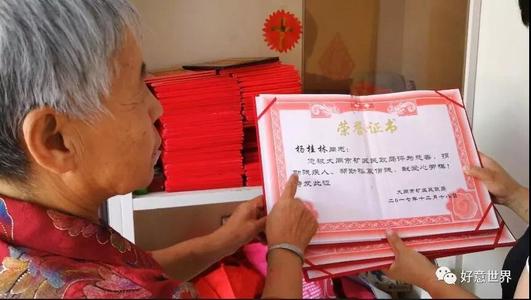 荣誉证书
杨桂林同志:
您被大同市矿区民政局评为慈善、捐
助残疾人、帮助孤寡、献爱心劳模!
特发此证
大同市矿区民政局
二〇一七年十二月十八日
好意世界